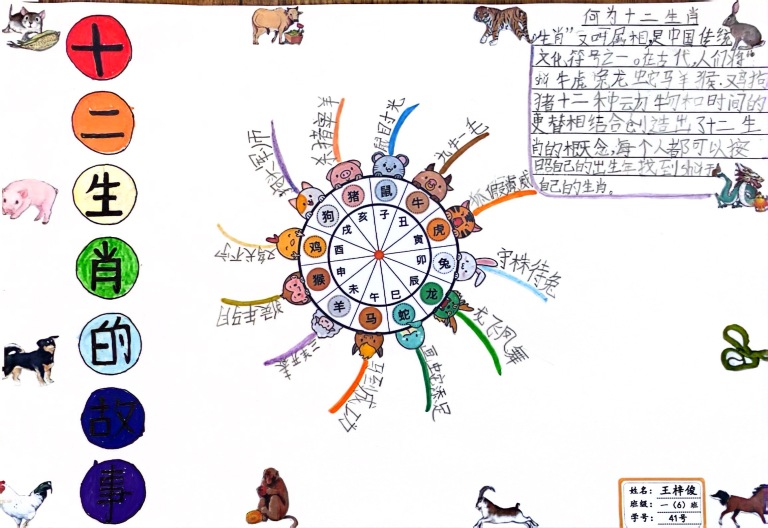 十
二
生
肖
的
故
事
何为十二生肖
"生肖"又叫属相,是中国传统
文化符号之一。在古代,人们将
牛虎兔龙蛇马羊猴鸡狗
猪十二种动物和时间的
更替相结合创造出了十二生
肖的概念,每个人都可以按
照自己的出生年找到
自己的生肖。
鼠目寸光
九牛一毛
狐假虎威
守株待兔
龙飞凤舞
画蛇添足
马到成功
三羊开泰
猴年马月
鸡犬不宁
狗头军师
杀猪宰羊
鼠
牛
虎
兔
龙
蛇
马
羊
猴
鸡
狗
猪
子
丑
寅
卯
辰
巳
午
未
申
酉
戌
亥
姓名:王梓俊
班级:一(6)班
学号:41号